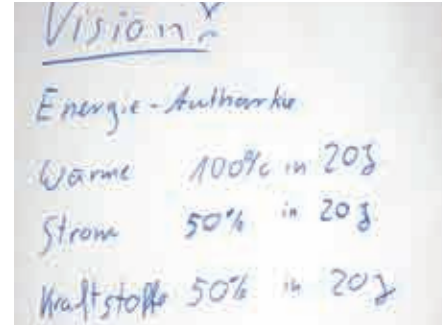 Vision:
Energie-Autharkie
Wärme 100% in 20J
Strom 50% in 20J
Kraftstoffe 50% in 20J